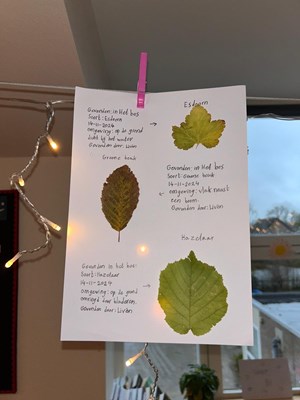 Gevonden: in het bos
Soort: Esdoorn
14-11-2024
omgeving: op de grond
dicht bij het water
Gevonden door: Livien
Esdoorn
Groene beuk
Gevonden: in het bos
Soort: Groene beuk
14-11-2024
omgeving: vlak naast
een boom.
Gevonden door: Livien
Hazelaar
Gevonden in het bos:
Soort: Hazelaar
14-11-2024
omgeving: op de grond
omringd door bladeren.
Gevonden door: Livien